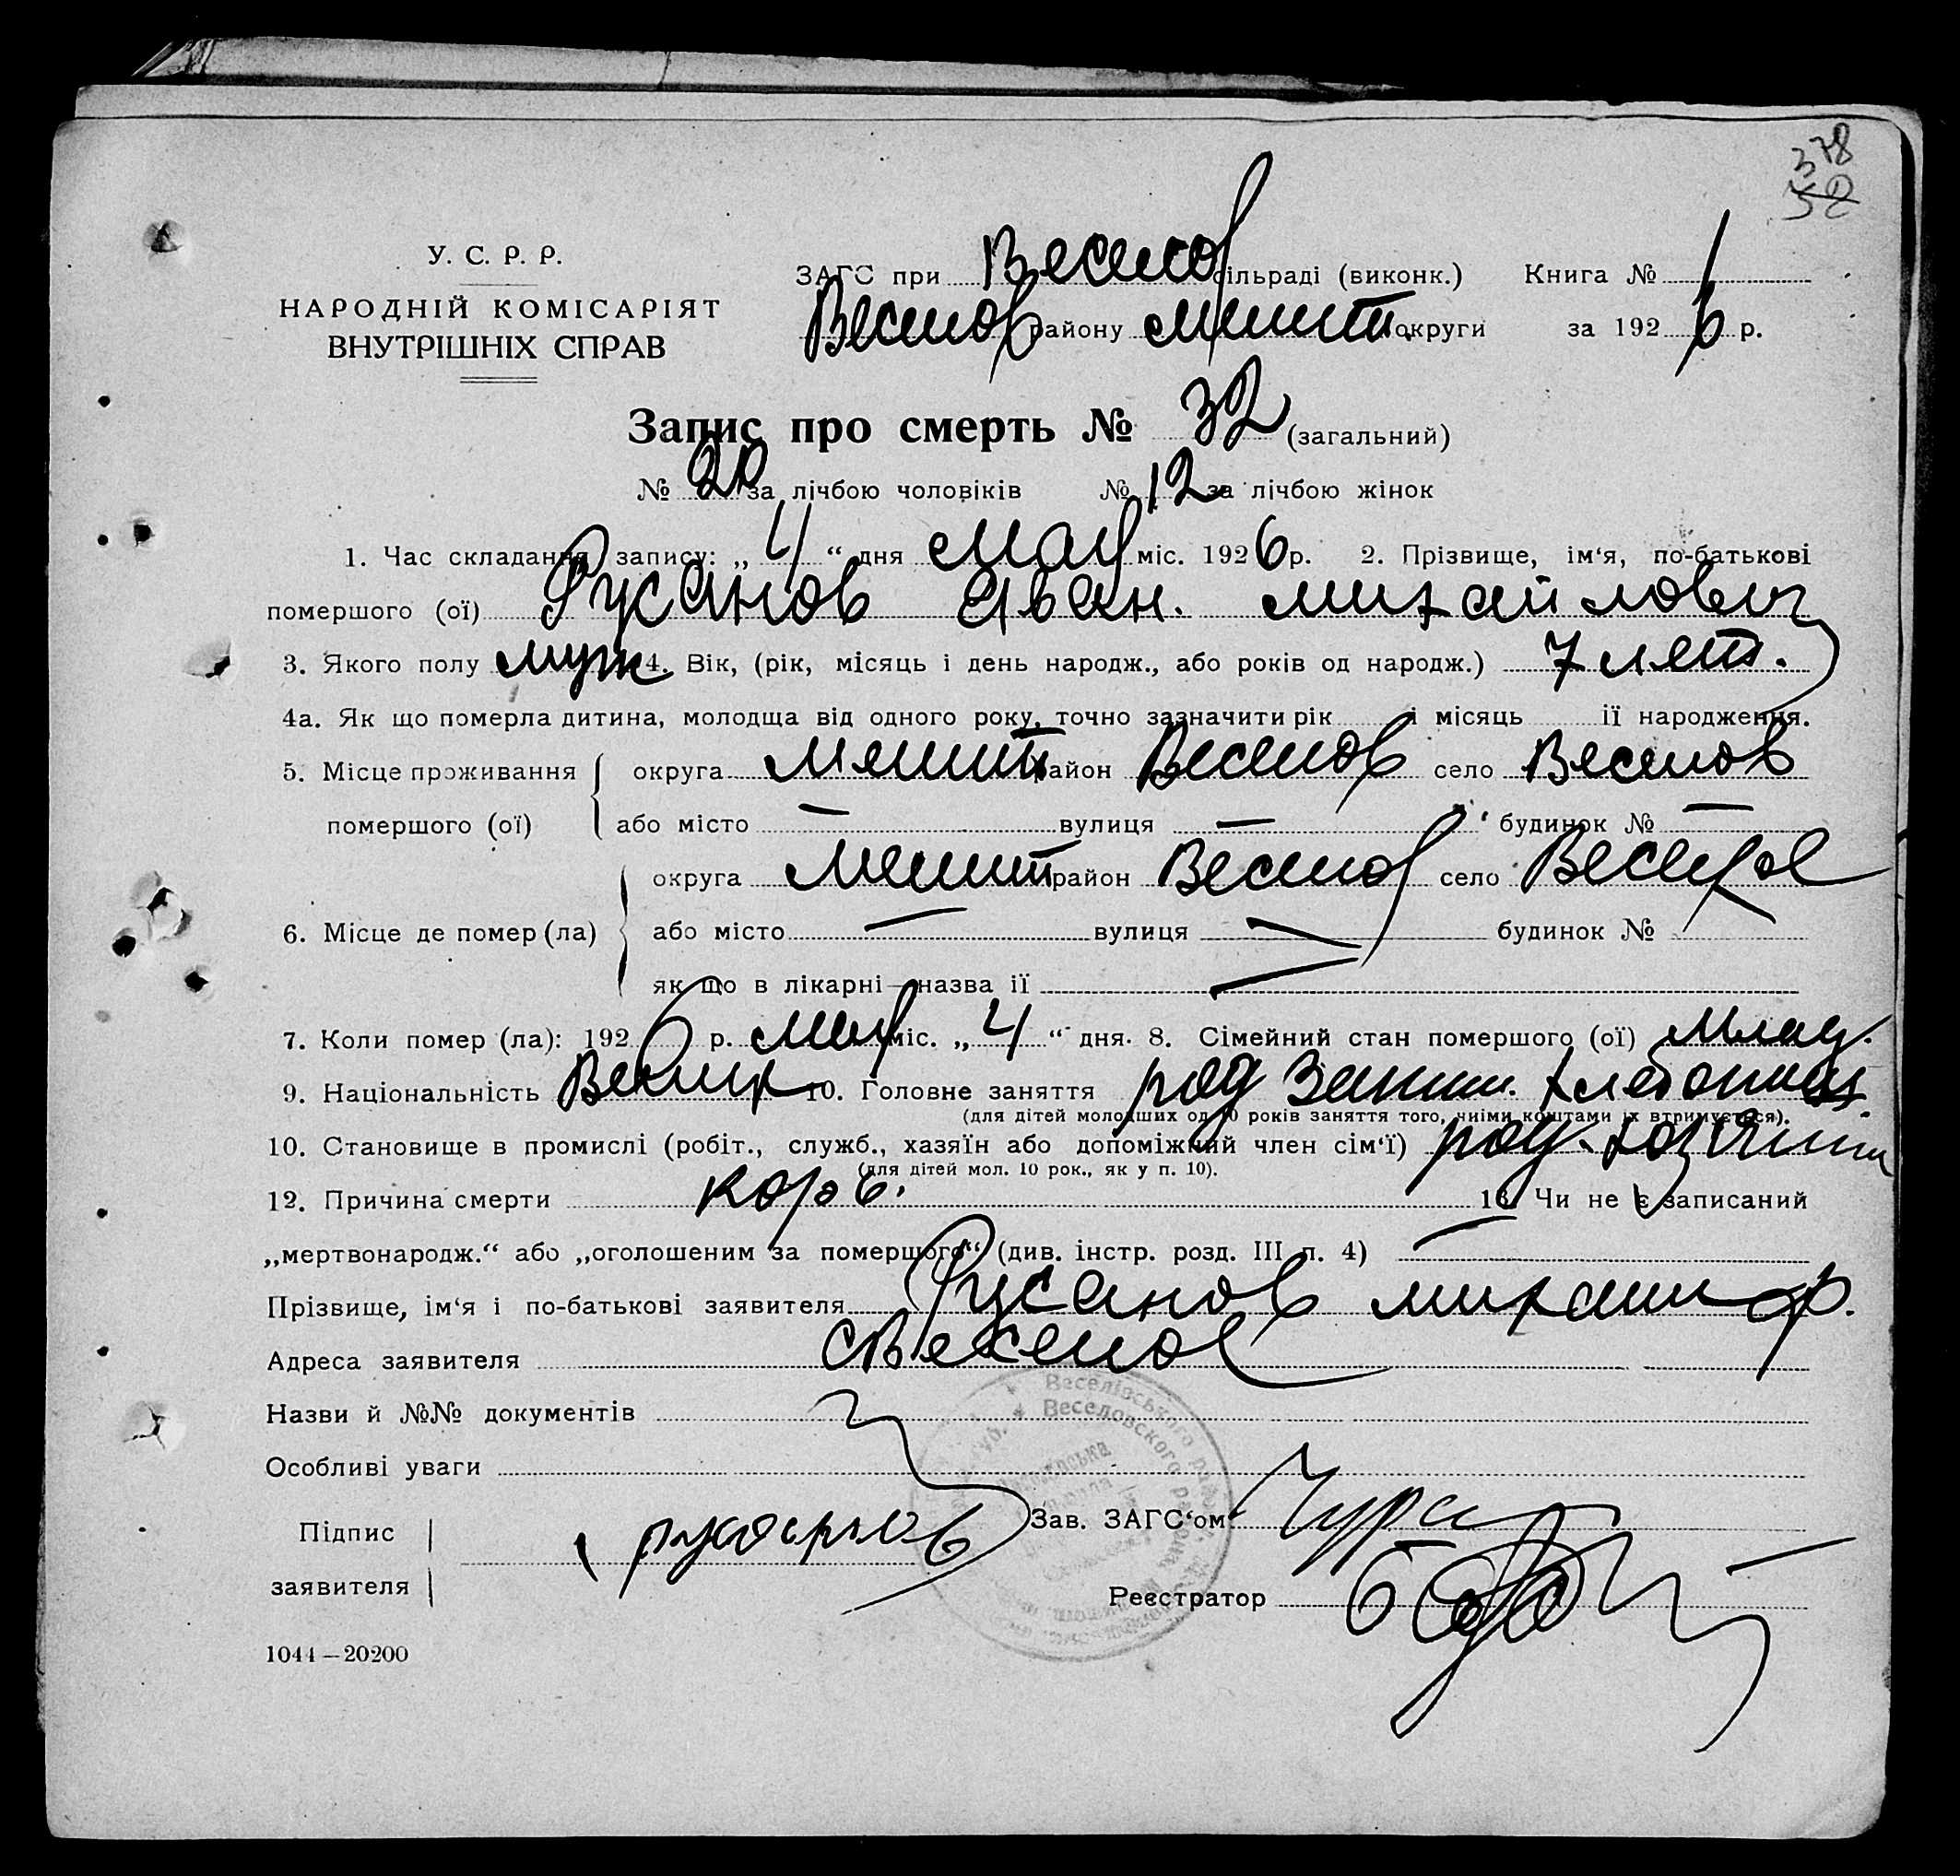 378
52
У. С. Р. Р.
НАРОДНІЙ КОМІСАРІЯТ
ВНУТРІШНІХ СПРАВ
ЗАГС при Веселов сільраді (виконк.) Книга № 1
Веселов району Мелит. округи за 1926 р.
Запис про смерть № 32 (загальний)
№ 20 за лічбою чоловіків № 12 за лічбою жінок
1. Час складання запису: „4“ дня мая міс. 1926 р. 2. Прізвище, ім‘я, по-батькові
помершого (ої) Русанов Иван. Михайлович
3. Якого полу муж 4. Вік, (рік, місяць і день народж., або років од народж.) 7 лет.
4а. Як що померла дитина, молодща від одного року, точно зазначити рік і місяць її народження.
5. Місце проживання помершого (ої) округа Мелит район Веселов село Веселов
або місто — вулиця — будинок № —
6. Місце де помер (ла) округа Мелит район Веселов село Веселое
або місто — вулиця — будинок №
як що в лікарні—назва її —
7. Коли помер (ла): 1926 р. мая міс. „4“ дня. 8. Сімейний стан помершого (ої) млад.
9. Національність Велик 10. Головне заняття род Заним. хлебопаш.
(для дітей молодших од 10 років заняття того, чиїми коштами їх втримується).
10. Становище в промислі (робіт., служб., хазяїн або допоміжний член сім‘ї) род. хозяин
(для дітей мол. 10 рок., як у п. 10).
12. Причина смерти корь. 13. Чи не є записаний
„мертвонародж.“ або „оголошеним за помершого“ (див. інстр. розд. III п. 4) —
Прізвище, ім‘я і по-батькові заявителя Русанов Михаил Ф.
Адреса заявителя с Веселое
Назви й №№ документів
Особливі уваги
Підпис заявителя Русанов
Зав. ЗАГС‘ом
Реєстратор
Веселівського
Веселовского района
1044—20200